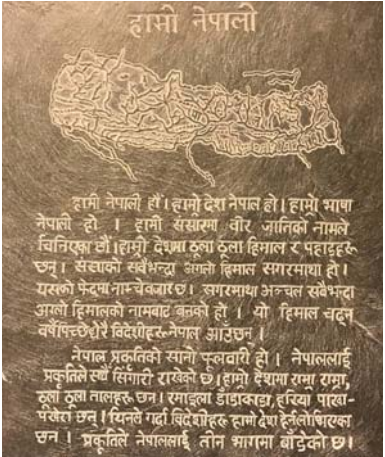 हामी नेपाली
हामी नेपाली हौं। हाम्रो देश नेपाल हो। हाम्रो भाषा
नेपाली हो । हामी संसारमा वीर जातिको नामले
चिनिएका छौं। हाम्रो देशमा ठूला ठूला हिमाल र पहाडहरू
छन्। संसारको सबैभन्दा अग्लो हिमाल सगरमाथा हो।
यसको फेदमा नाम्चेबजार छ। सगरमाथा अञ्चल सबैभन्दा
अग्लो हिमालको नामबाट बनेको हो । यो हिमाल चढ्न
वर्षेपिच्छे धेरै विदेशीहरू नेपाल आउँछन् ।
नेपाल प्रकृतिको सानो फूलवारी हो । नेपाललाई
प्रकृतिले सधैं सिंगारी राखेको छ। हाम्रो देशमा रामा रामा,
ठूला ठूला तालहरू छन्। रमाइला डाँडाकाडा, हरिया पाखा-
पखेरा छन्। यिनले गर्दा विदेशीहरू हाम्रो देश हेर्न लोभिएका
छन । प्रकृतिले नेपाललाई तीन भागमा बाँडेको छ।